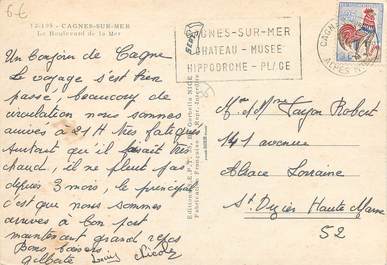 6€
12/195 - CAGNES-SUR-MER
Le Boulevard de la Mer
CAGNES-SUR-MER
CHATEAU - MUSEE
HIPPODROME - PLAGE
CAGN
ALPES
Un bonjour de Cagnes
Le voyage s'est bien
passé, beaucoup de
circulation nous sommes
arrivés à 21H très fatigués
Autant qu'il faisait très
chaud, il ne pleut pas
depuis 3 mois, le principal
c'est que nous sommes
arrivés à bon port
maintenant grand repos
Bons baisers
Gilberte Louis Nicole
Fabrication Française
Mr et Mme Tayon Robert
141 avenue
Alsace Loraine
St Dizier Haute Marne
52